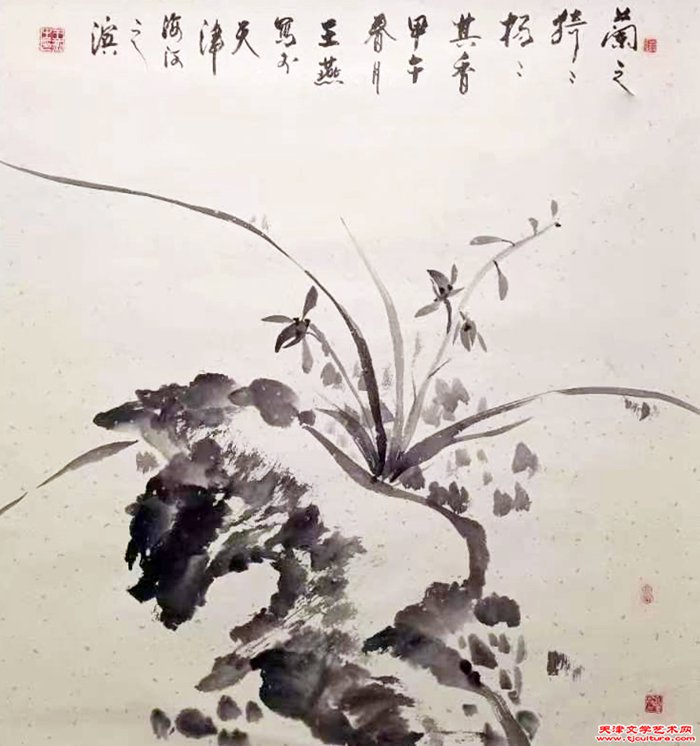 蘭之
猗〻
揚〻
其香
甲午
春月
王燕
寫於
天
津
海河
之
濱
天津文学艺术网
www.tjculture.com